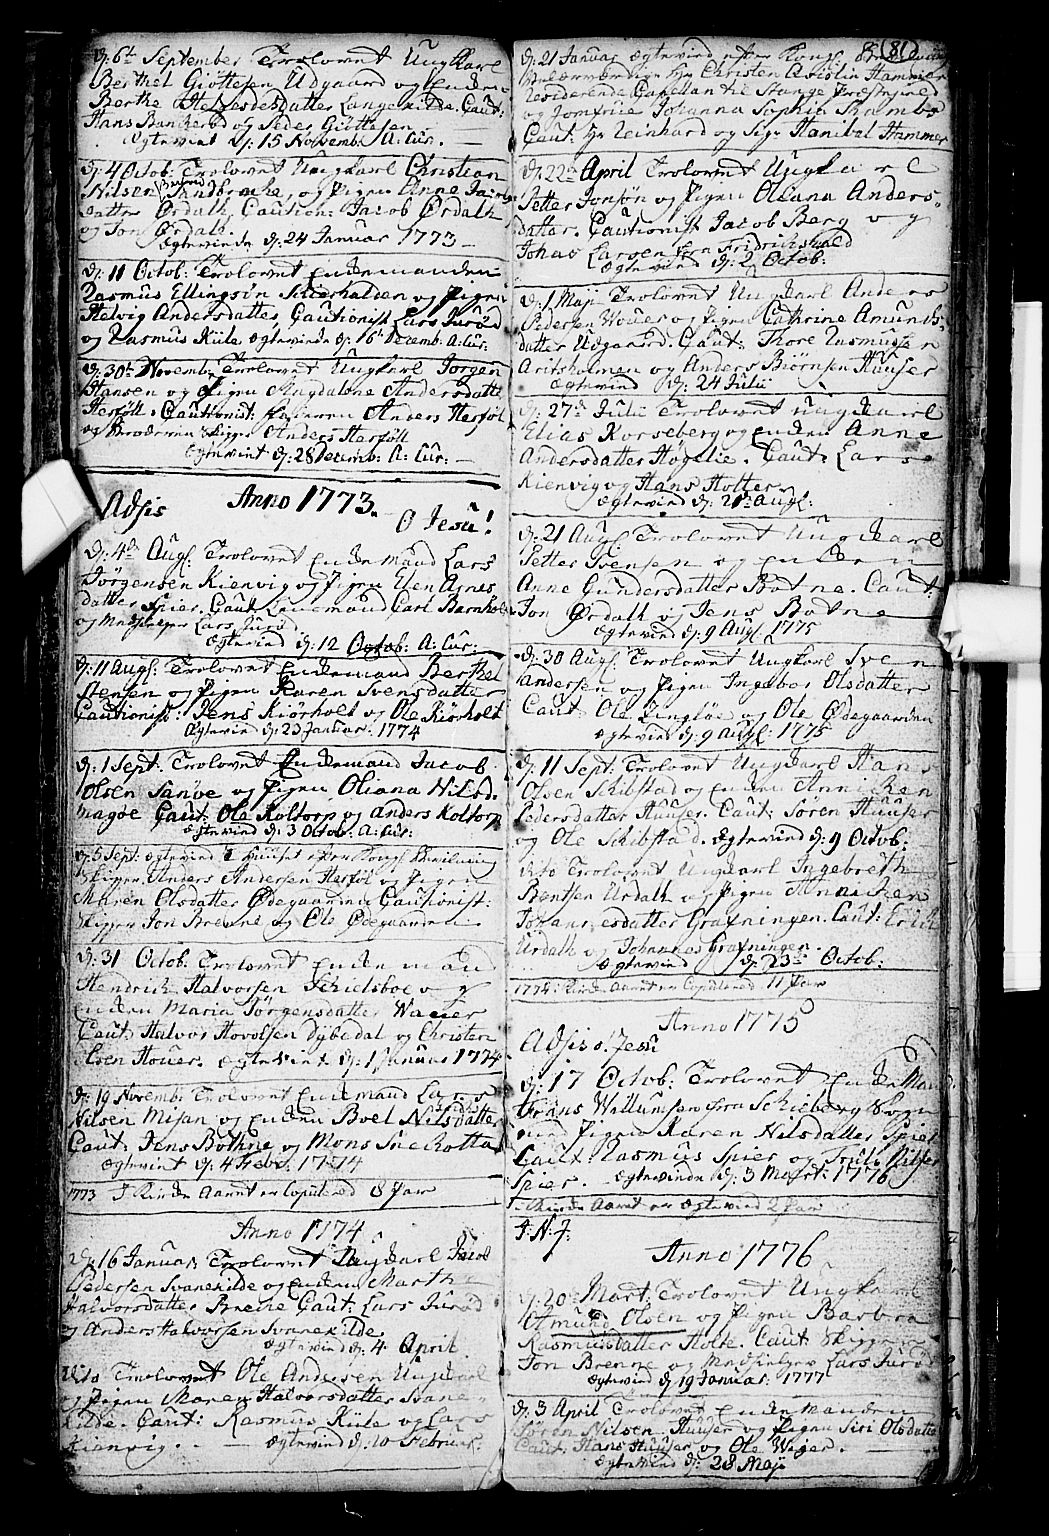 d: 6te September Trolovet Ungkarl
Berthel Giøttesen Udgaard og Enden
Berthe Langekilde. Caut:
Hans Bankerød og Peder Giøttesen
Egteviet d: 15 Novemb: A: Cur.
d: 4 Octob: Trolovet Ungkarl Christian
Nilsen Sandbrecke, og Pigen Anne Jacobs
datter Ørdalh, Caution: Jacob Ørdalh
og Jon Ørdalh.
Egteviede d: 24 Januar 1773
d: 11 Octob: Trolovet Enckemanden
Rasmus Ellingsøn og Pigen
Helvig Andersdatter Cautionist Lars Jurød
og Rasmus Kiile Egteviede d: 16 Decemb: A: Cur:
d: 30te Novemb: Trolovet Ungkarl Jørgen
Hansen og Pigen Magdalene Andersdatter
Herføll. Cautionist: Faderen Anders Herføl
og Broderen Skipper Anders Herføll
Egteviet d: 28 Decemb: A: Cur:
Adsis Anno 1773. O Jesu!
d: 4de Aug: Trolovet Enckemand Lars
Jørgensen Kienvig og Pigen Elen Agnes
datter Spier. Caut. Lensmand Carl Barnholt
og Medhielper Lars Jurød
Egteviede d: 12 Octob: A: Cur:
d: 11 Aug: Trolovet Enckemand Berthel
Stensen og Pigen Karen Svensdatter
Cautionist: Jens Kiørholt og Ole Kiørholt
Egteviet d: 23 Januar: 1774
d: 1 Sept: Trolovet Enckemand Jacob
Olsen Sanøe og Pigen Oliana Nilsd.
Magøe Caut: Ole Koltorp og Anders Koltorp
Egteviede d: 3 Octob: A: Cur:
d: 5 Sept: Egteviede i Huuset efter Kongl: Bevilning
Skipper Anders Andersen Herføl og Pigen
Maren Olsdatter Ødegaarden Cautionist:
Skipper Jon Brenne og Ole Ødegaarden
d: 31 Octob: Trolovet Enckemand
Hendrich Halvorsen Schielsboe og
Encken Maria Jørgensdatter
Caut: Halvor Hovelsen Dybedal og Christen
Olsen Houer. Egteviet d: 1 Januar 1774
d: 19 Novemb: Trolovet Enckemand Lars
Nilsen Misan og Encken Boel Nilsdatter
Caut: Jens Bothne og Mons Snekotta
Egteviet d: 4 Febr: 1774
1773 I Kirke Aaret er Copulered 8 Par
Anno 1774
d: 16 Januar: Trolovet Ungkarl Jacob
Pedersen Svanekilde og Encken Marthe
Halvorsdatter Brene Caut: Lars Jurød
og Anders Halvorsen Svanekilde
Egteviede d: 4 April
Dito Trolovet Ole Andersen Ungkarl
og Pigen Maren Halvorsdatter Svane-
kilde. Caut: Rasmus Kiile og Lars
Kienvig. Egteviede d: 20 Februar:
81
d: 21 Januar Egteviede efter Kongl:
Velærværdige Hr Christen Hammer
Residerende Capellan til Stange Præstegield
og Jomfrue Johanna Sophia
Caut: Hr Reinhard og Sigr Hanibal Hammer
d: 22de April Trolovet Ungkarl
Petter Jonsøn og Pigen Oliana Anders-
datter. Cautionist Jacob Berg og
Johan Larsen fra Fridrichshald
Egteviede d: 2 Octob:
d: 1 Maji Trolovet Ungkarl Anders
Pedersen Houer og Pigen Cathrine Amunds-
datter Udgaard. Caut: Thore Rasmussen
Aritsholmen og Anders Biørnsen Huuser
Egteviede d: 24 Julii
d: 27de Julii Trolovet Ungkarl
Elias Korseberg og Encken Anne
Andersdatter Hogelie. Caut: Lars
Kienvig og Hans Holter
Egteviede d: 21de Aug:
d: 21 Aug: Trolovet Ungkarl
Petter Svensen og Encken
Anne Gundersdatter Botne. Caut:
Jon Ørdalh og Jens Botne
Egteviede d: 9 Aug: 1775
d: 30 Aug: Trolovet Ungkarl Sven
Andersen og Pigen Ingebor Olsdatter
Caut: Ole og Ole Ødegaarden
Egteviede d: 9 Aug: 1775
d: 11 Sept: Trolovet Ungkarl Hans
Olsen Schibstad og Encken Anniken
Pedersdatter Huuser. Caut: Søren Huuser
og Ole Schibstad. Egteviede d: 9 Octob:
Dito Trolovet Ungkarl Ingebreth
Bentsen Urdalh og Pigen Anniken
Johannesdatter Grafningen. Caut: Erich
Urdalh og Johannes Grafningen.
Egteviede d: 23de Octob:
1774: Kirke Aaret er Copulered 11 Par
Anno 1775
Adsis o Jesu
d: 17 Octob: Trolovet Enckemand
Frans Willumsen fra Schieberg Sogn
med Pigen Karen Nilsdatter Spier
Caut: Rasmus Spier og Truls
Spier. Egteviede d: 3 Mart: 1776
I Kirke Aaret er Egteviede 2 Par
I. N. J.
Anno 1776
d: 20de Mart: Trolovet Ungkarl
Amund Olsen og Pigen Barbra
Rasmusdatter Holte. Caut: Skipper
Jon Brenne og Medhielper Lars Jurød
Egteviede d: 19 Januar: 1777
d: 3 April Trolovet Enckemanden
Søren Nilsen Huuser og Pigen Siri Olsdatter
Caut: Hans Huuser og Ole Wiger.
Egteviede d: 28 Maji